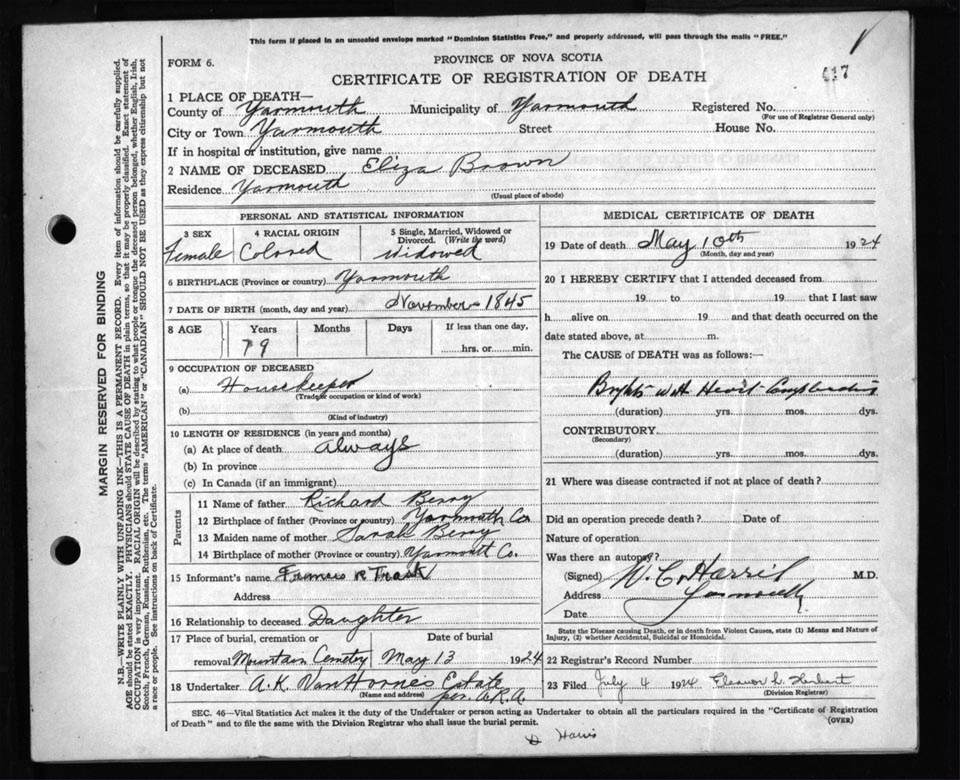 This form if placed in an unsealed envelope marked "Dominion Statistics Free," and properly addressed, will pass through the mails "FREE."
FORM 6.
PROVINCE OF NOVA SCOTIA
CERTIFICATE OF REGISTRATION OF DEATH
417
1 PLACE OF DEATH—
County of Yarmouth Municipality of Yarmouth Registered No.
(For use of Registrar General only)
City or Town Yarmouth Street House No.
If in hospital or institution, give name
2 NAME OF DECEASED Eliza Brown
Residence Yarmouth
(Usual place of abode)
PERSONAL AND STATISTICAL INFORMATION
3 SEX 4 RACIAL ORIGIN 5 Single, Married, Widowed or Divorced. (Write the word)
Female Colored Widowed
6 BIRTHPLACE (Province or country) Yarmouth
7 DATE OF BIRTH (month, day and year) November 1845
8 AGE Years Months Days If less than one day,
79 hrs. or min.
9 OCCUPATION OF DECEASED
(a) Housekeeper
(Trade, occupation or kind of work)
(b)
(Kind of industry)
10 LENGTH OF RESIDENCE (in years and months)
(a) At place of death always
(b) In province
(c) In Canada (if an immigrant)
Parents
11 Name of father Richard Berry
12 Birthplace of father (Province or country) Yarmouth Co
13 Maiden name of mother Sarah Berry
14 Birthplace of mother (Province or country) Yarmouth Co.
15 Informant's name Francis R Trask
Address
16 Relationship to deceased Daughter
17 Place of burial, cremation or removal Mountain Cemetry Date of burial May 13 1924
18 Undertaker A. K. VanHornes Estate
(Name and address) per. A.R.A.
MEDICAL CERTIFICATE OF DEATH
19 Date of death May 10th 1924
(Month, day and year)
20 I HEREBY CERTIFY that I attended deceased from
19 to 19 that I last saw
h alive on 19 and that death occurred on the
date stated above, at m.
The CAUSE of DEATH was as follows:—
Brights with Heart
(duration) yrs. mos. dys.
CONTRIBUTORY
(Secondary)
(duration) yrs. mos. dys.
21 Where was disease contracted if not at place of death?
Did an operation precede death? Date of
Nature of operation
Was there an autopsy?
(Signed) W. C. Harris M.D.
Address Yarmouth
Date
State the Disease causing Death, or in death from Violent Causes, state (1) Means and Nature of Injury, (2) whether Accidental, Suicidal or Homicidal.
22 Registrar's Record Number
23 Filed July 4 1924 Eleanor L.
(Division Registrar)
SEC. 46—Vital Statistics Act makes it the duty of the Undertaker or person acting as Undertaker to obtain all the particulars required in the "Certificate of Registration
of Death" and to file the same with the Division Registrar who shall issue the burial permit.
(OVER)
Harris
MARGIN RESERVED FOR BINDING
N.B.—WRITE PLAINLY WITH UNFADING INK—THIS IS A PERMANENT RECORD. Every item of information should be carefully supplied.
AGE should be stated EXACTLY. PHYSICIANS should STATE CAUSE OF DEATH in plain terms, so that it may be properly classified. Exact statement of
OCCUPATION is very important. RACIAL ORIGIN will be described by stating to what people or tongue the deceased person belonged, whether English, Irish,
Scotch, French, German, Russian, Ruthenian, etc. The terms "AMERICAN" or "CANADIAN" SHOULD NOT BE USED as they express citizenship but not
a race or people. See instructions on back of Certificate.